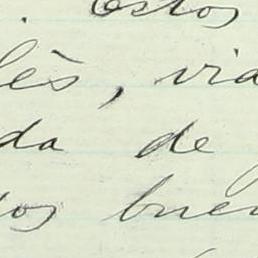 . Estos
lês, via
da de
os buen